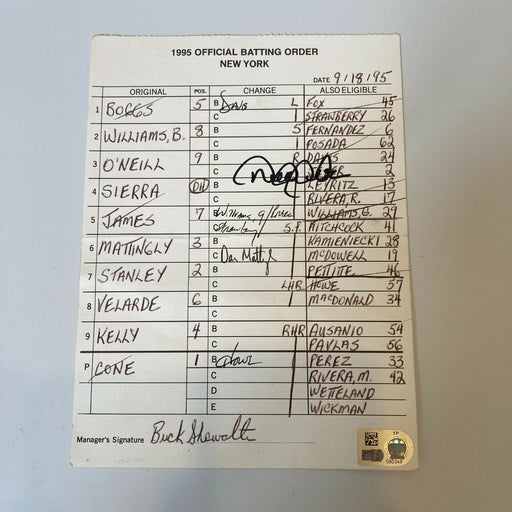 1995 OFFICIAL BATTING ORDER
NEW YORK
DATE 9/18/95
ORIGINAL POS. CHANGE ALSO ELIGIBLE
1 BOGGS 5 B Davis L FOX 45
C STRAWBERRY 26
2 WILLIAMS, B. 8 B S FERNANDEZ 6
C POSADA 62
3 O'NEILL 9 B R DAVIS 24
C 2
4 SIERRA DH B LEYRITZ 13
C RIVERA, R. 17
5 JAMES 7 B Williams, G/ WILLIAMS, G. 29
C Strawberry S.P. HITCHCOCK 41
6 MATTINGLY 3 B KAMIENIECKI 28
C Don Mattingly MCDOWELL 19
7 STANLEY 2 B PETTITTE 46
C LHR HOWE 57
8 VELARDE 6 B MACDONALD 34
C
9 KELLY 4 B RHR AUSANIO 54
C PAVLAS 56
P CONE 1 B Howe PEREZ 33
C RIVERA, M. 42
D WETTELAND
E WICKMAN
Manager's Signature Buck Showalter